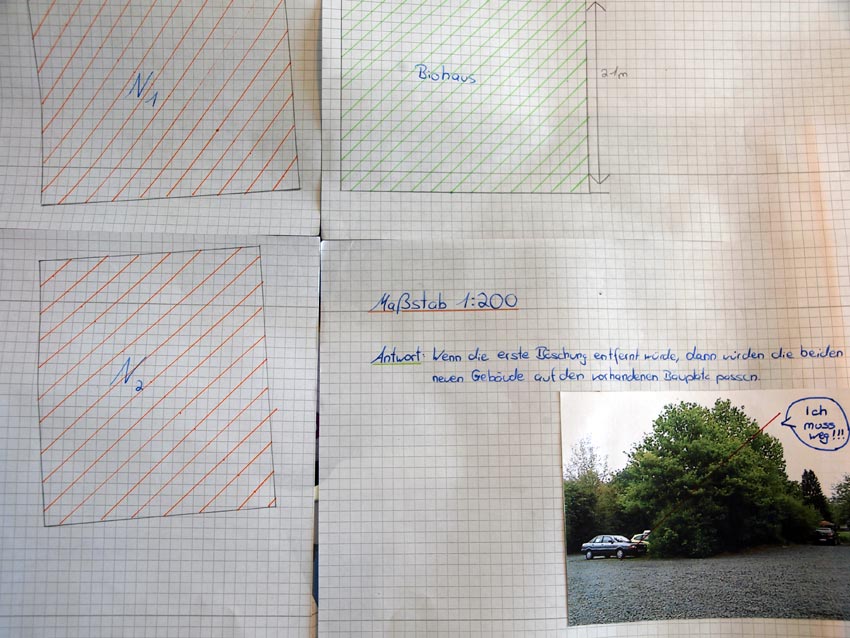 N1
Biohaus
21m
N2
Maßstab 1:200
Antwort: Wenn die erste Böschung entfernt würde, dann würden die beiden
neuen Gebäude auf den vorhandenen Bauplatz passen.
Ich
muss
weg!!!